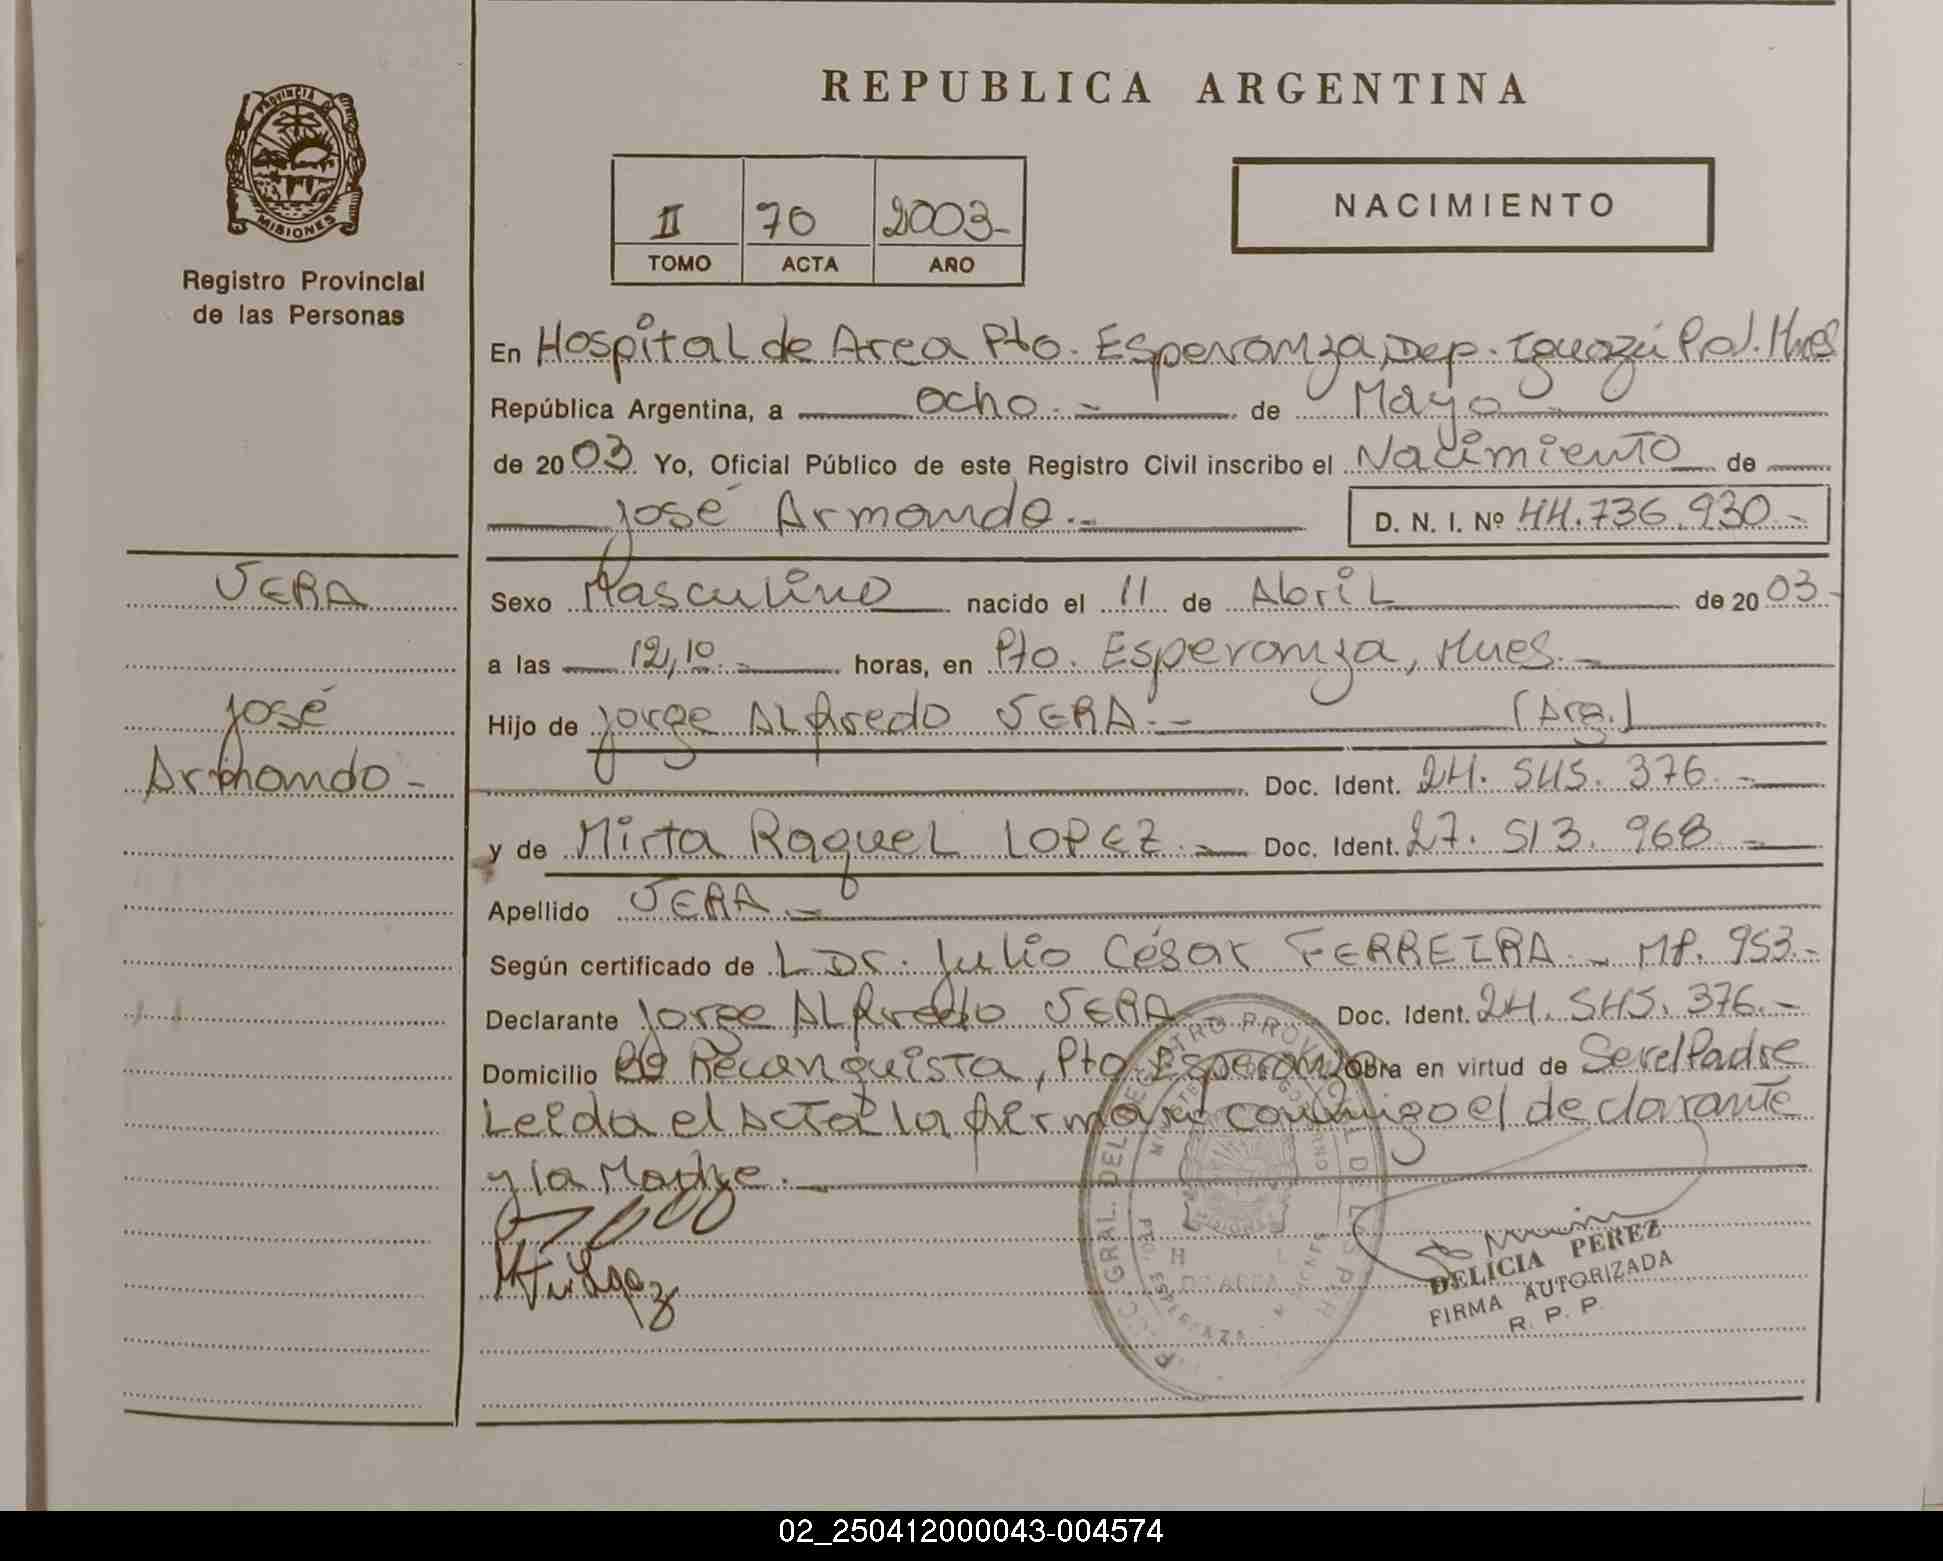 REPUBLICA ARGENTINA
PROVINCIA DE
MISIONES
Registro Provincial
de las Personas
II 70 2003-
TOMO ACTA AÑO
NACIMIENTO
En Hospital de Area Pto. Esperanza, Dep. Iguazú Mnes
República Argentina, a ocho.- de Mayo
de 2003 Yo, Oficial Público de este Registro Civil inscribo el Nacimiento de
José Armando.- D. N. I. Nº 44.736.930.-
VERA
José
Armando-
Sexo Masculino nacido el 11 de Abril de 2003-
a las 12,10.- horas, en Pto. Esperanza, Mnes.-
Hijo de Jorge Alfredo VERA.- (Arg.)
Doc. Ident. 24.545.376.-
y de Mirta Raquel LOPEZ.- Doc. Ident. 27.513.968-
Apellido VERA.-
Según certificado de Dr. Julio César FERREIRA.- MP. 953.-
Declarante Jorge Alfredo VERA Doc. Ident. 24.545.376.-
Domicilio Reconquista, Pto. Esperanza Obra en virtud de Ser el Padre
Leida el Acta la firman conmigo el declarante
y la Madre.
DELICIA PEREZ
FIRMA AUTORIZADA
R. P. P.
02_250412000043-004574